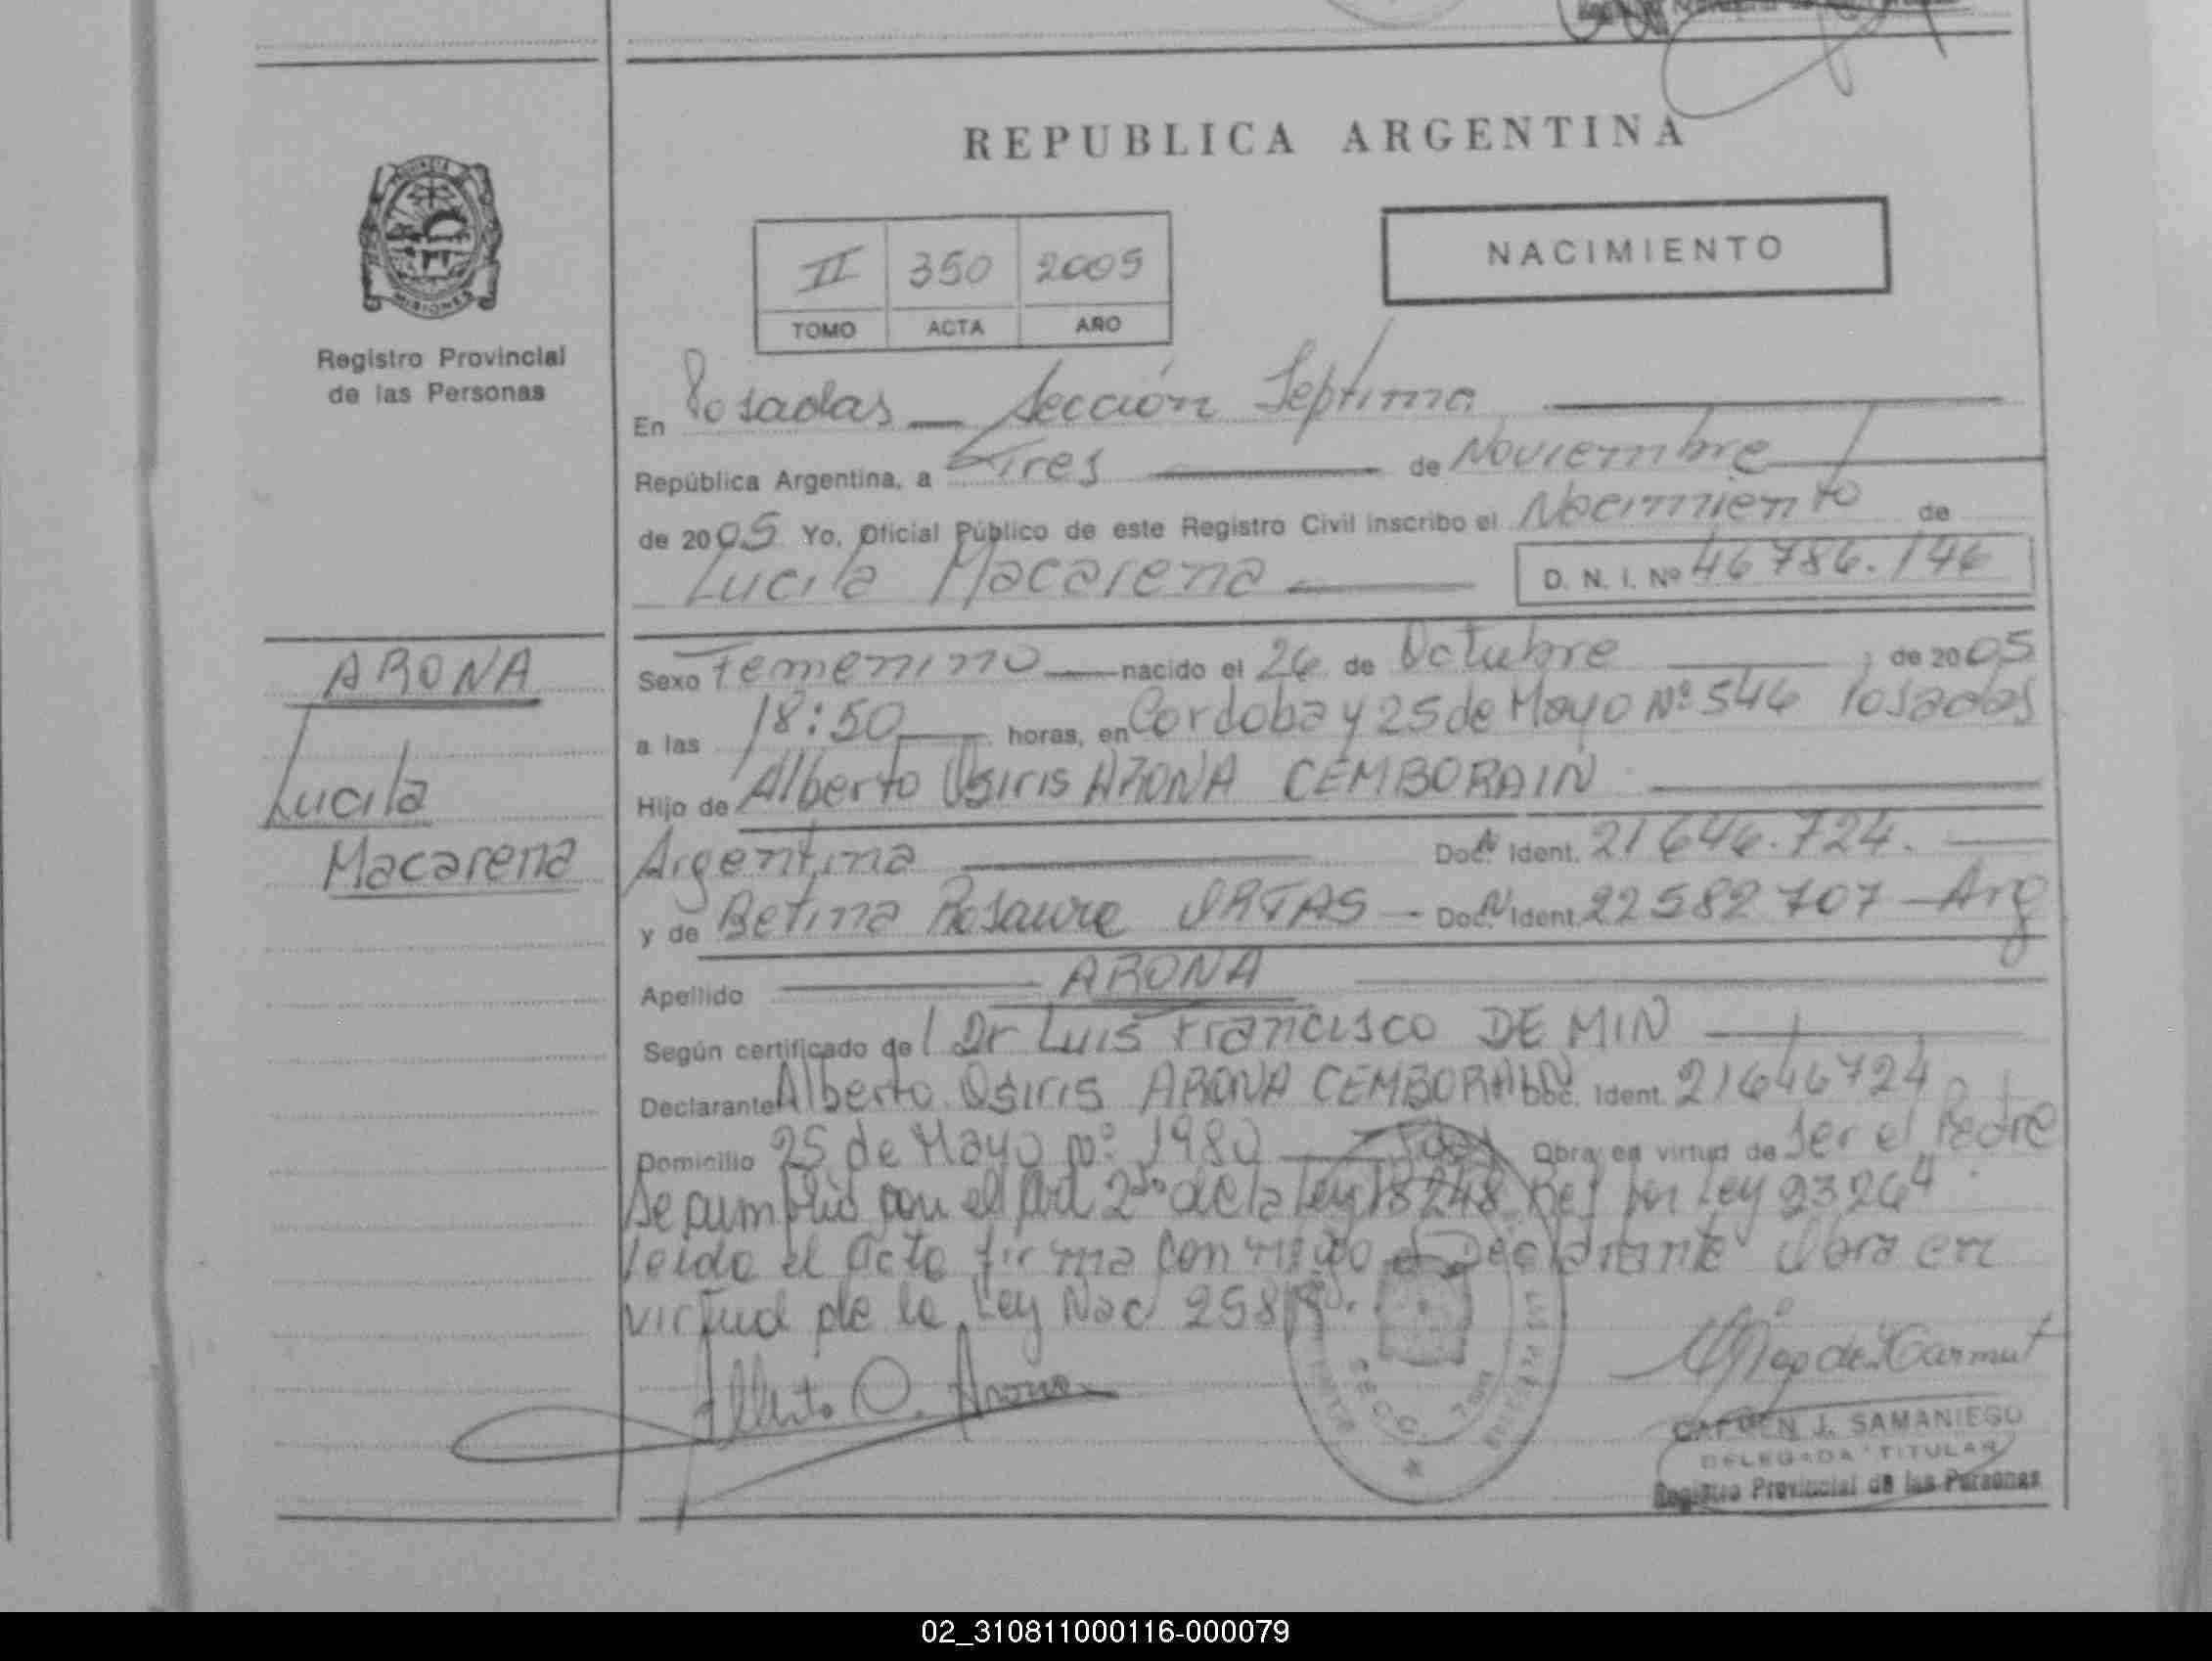 REPUBLICA ARGENTINA
NACIMIENTO
II 350 2005
TOMO ACTA AÑO
PROVINCIA DE
MISIONES
Registro Provincial
de las Personas
En Posadas — Sección Septima
República Argentina, a Tres de Noviembre
de 2005 Yo, Oficial Público de este Registro Civil inscribo el Nacimiento de
Lucila Macarena
D. N. I. Nº 46786.146
ARONA
Lucila
Macarena
Sexo Femenino nacido el 26 de Octubre de 2005
a las 18:50 horas, en Cordoba y 25 de Mayo Nº 546 Posadas
Hijo de Alberto Osiris ARONA CEMBORAIN
Argentina Doc. Ident. 21646.724.
y de Betina Rosaura Doc. Ident. 22582707 — Arg
Apellido ARONA
Según certificado del Dr Luis Francisco DE MIN
Declarante Alberto Osiris ARONA CEMBORAIN Doc. Ident. 21646724
Domicilio 25 de Mayo nº 1980 Obra en virtud de Ser el Padre
Se cumplió con el Art 2do de la Ley 18248 Ref por Ley 23264
leido el Acta firma con migo el Declarante Obra en
virtud de la Ley Nac
Alberto O. Arona
SECC. 7ma
CARMEN J. SAMANIEGO
DELEGADA TITULAR
Registro Provincial de las Personas
02_310811000116-000079